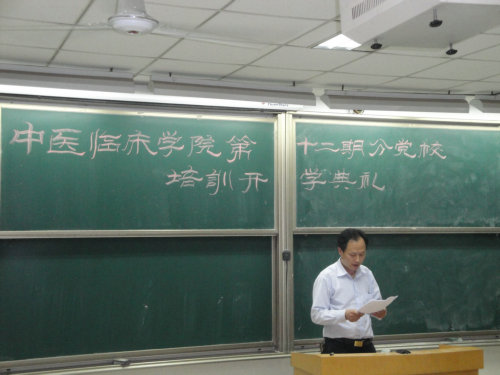 中医临床学院第十二期分党校
培训开学典礼